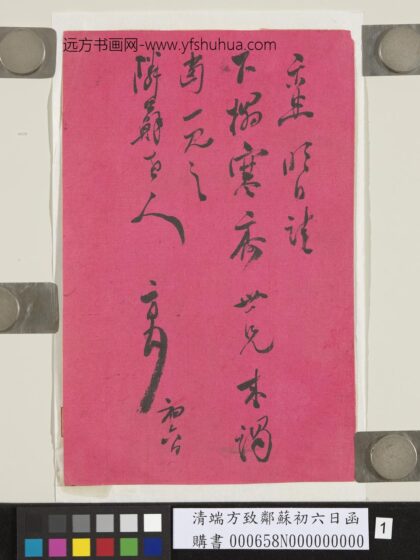 远方书画网-www.yfshuhua.com
示悉明日請
下榻寒齋世兄來謁
當一見之
隣蘇老人
方
初六日
清端方致鄰蘇初六日函
購書 000658N000000000
1